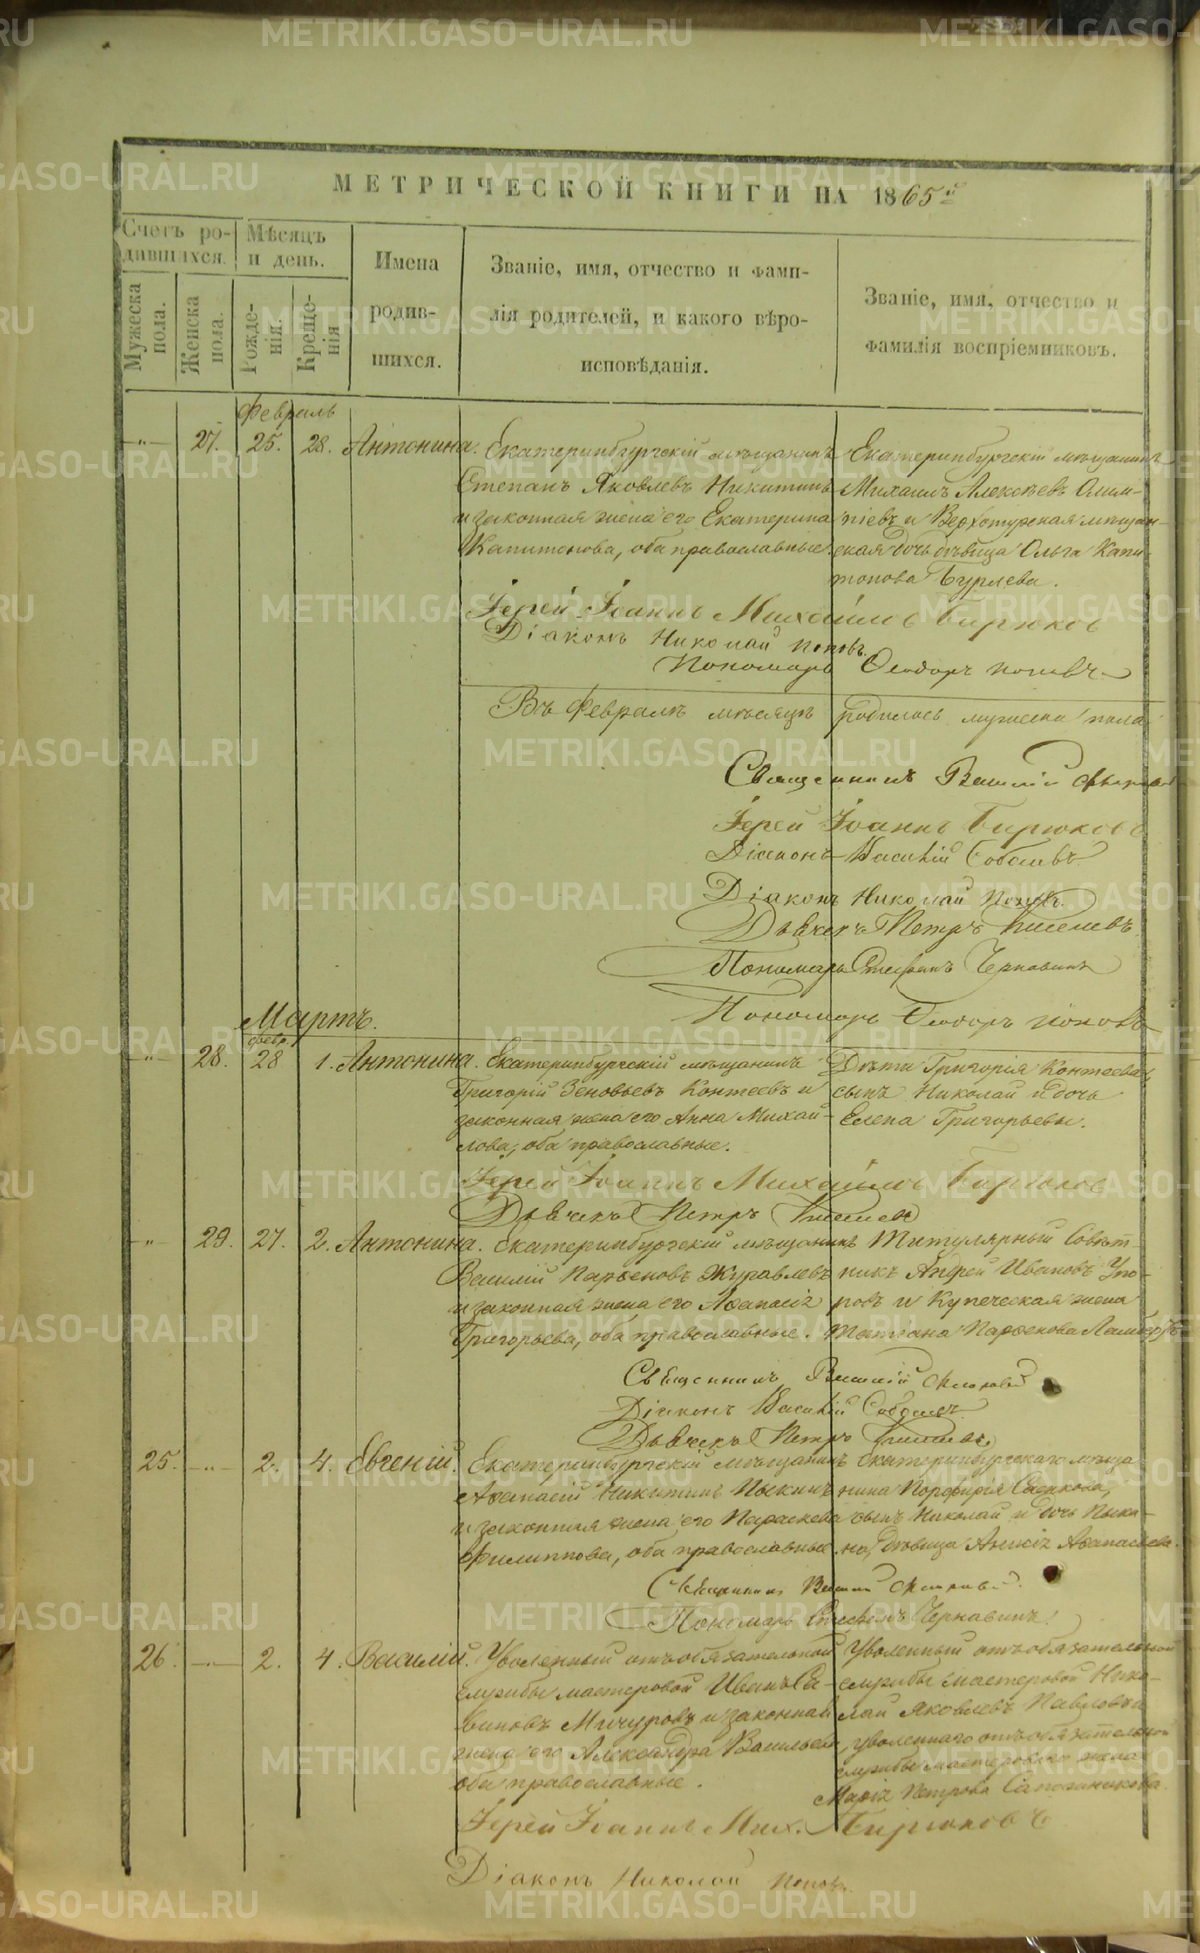 МЕТРИЧЕСКОЙ КНИГИ НА 1865й
Счетъ ро-
дившихся.
Мѣсяцъ
и день.
Мужеска
пола.
Женска
пола.
Рожде-
нія.
Креще-
нія
Имена
родив-
шихся.
Званіе, имя, отчество и фами-
лія родителей, и какого вѣро-
исповѣданія.
Званіе, имя, отчество и
фамилія воспріемниковъ.
Февраль
-"- 27. 25. 28. Антонина. Екатеринбургскій мѣщанинъ Екатеринбургскій мѣщанинъ
Степанъ Яковлевъ Никитинъ Михаилъ Алексѣевъ Олим-
и законная жена его Екатерина піевъ и Верхотурская мѣщан-
Капитонова, оба православные. ская дочь дѣвица Ольга Капи-
тонова Бурлева.
Іерей Іоаннъ Михайловъ Бирюковъ
Діаконъ Николай Поповъ.
Пономарь Ѳеодоръ Поповъ
Въ Февралѣ мѣсяцѣ родилось мужеска пола
Священникъ Василій
Іерей Іоаннъ Бирюковъ
Діаконъ Василій Соболевъ
Діаконъ Николай Поповъ.
Дьячекъ Петръ Киселевъ
Пономарь Стефанъ Чернавинъ
Пономарь Ѳеодоръ Поповъ
Мартъ.
февр.
-"- 28. 28 1. Антонина. Екатеринбургскій мѣщанинъ Дѣти Григорія Контеева
Григорій Зеновьевъ Контеевъ и сынъ Николай и дочь
законная жена его Анна Михай- Елена Григорьевы.
лова, оба православные.
Іерей Іоаннъ Михайловъ Бирюковъ
Дьячекъ Петръ Киселевъ
-"- 29. 27. 2. Антонина. Екатеринбургскій мѣщанинъ Титулярный Совѣт-
Василій Парѳеновъ Журавлевъ никъ Андрей Ивановъ Упо-
и законная жена его Аѳанасія ровъ и Купеческая жена
Григорьева, оба православные. Татіана Парѳенова Ламбертъ
Священникъ Василій
Діаконъ Василій Соболевъ
Дьячекъ Петръ Киселевъ
25. -"- 2. 4. Евгеній. Екатеринбургскій мѣщанинъ Екатеринбургскаго мѣща
Аѳанасій Никитинъ Пыкинъ нина Порфирія
и законная жена его Параскева сынъ Николай и дочь Пыки-
Филиппова, оба православные. на, дѣвица Анисія Аѳанасьева.
Священникъ Василій
Пономарь Стефанъ Чернавинъ
26. 2. 4. Василій. Уволенный отъ обязательной Уволенный отъ обязательной
службы мастеровой Иванъ Са- службы мастеровой Нико-
виновъ Мичуровъ и законная лай Яковлевъ Павловъ и
жена его Александра Васильева, уволеннаго отъ обязательной
службы мастероваго жена
оба православные.
Марія Петрова Сапожникова.
Іерей Іоаннъ Мих. Бирюковъ
Діаконъ Николай Поповъ.
METRIKI.GASO-URAL.RU